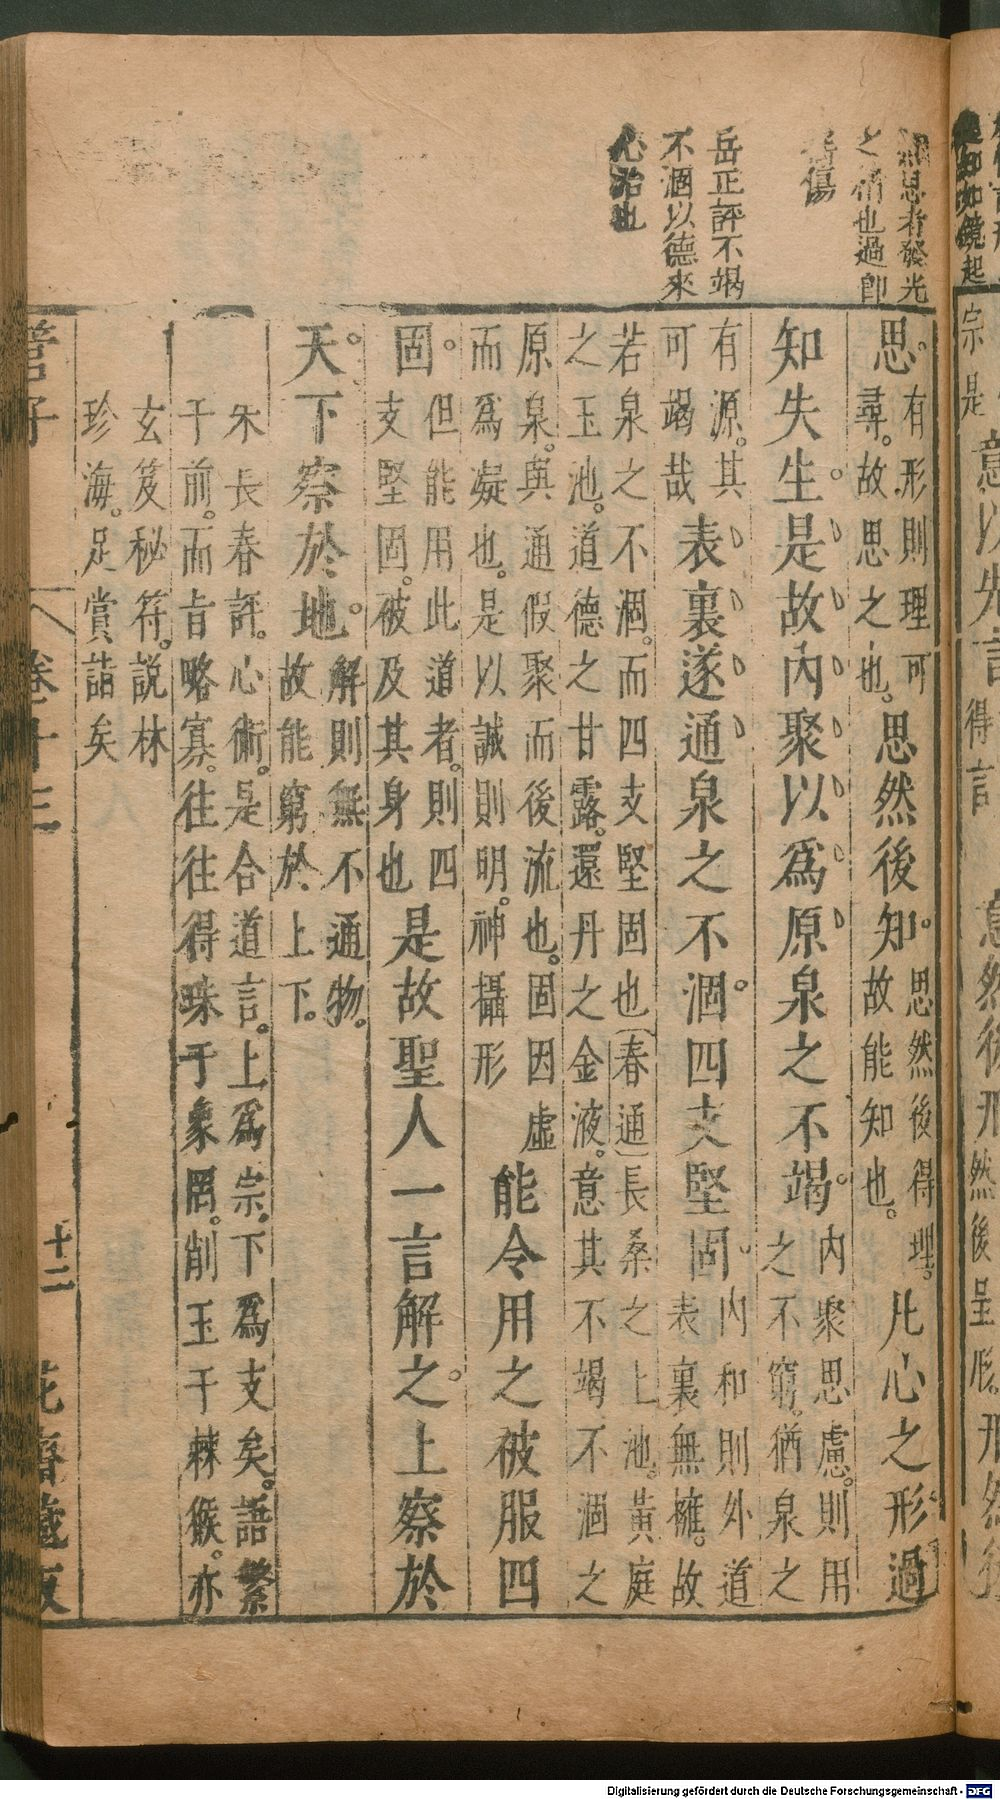 思者發光
之精也過即
傷
岳正評不竭
不涸以德來
心治也
思。有形則理可尋。故思之也。思然後知。思然後得理。故能知也。凡心之形過
知失生。是故內聚以爲原泉之不竭。內聚思慮。則用之不窮。猶泉之
有源。其可竭哉表裏遂通泉之不涸。四支堅固。內和則外道表裏無擁。故
若泉之不涸。而四支堅固也(春通)長桑之上池。黃庭
之玉池。道德之甘露。還丹之金液。意其不竭不涸之
原泉。與通假聚而後流也。固因虛而爲凝也。是以誠則明。神攝形能令用之被服四
固。但能用此道者。則四支堅固。被及其身也是故聖人一言解之。上察於
天。下察於地。解則無不通物。故能窮於上下。
朱長春評。心術。是合道言。上爲宗。下爲支矣。語繁
于前。而旨略寡。往往得味于象罔。削玉干棘猴。亦
玄笈秘符。說林
珍海。足賞詣矣
管子 卷十三 十二 花齋藏板
Digitalisierung gefördert durch die Deutsche Forschungsgemeinschaft - DFG